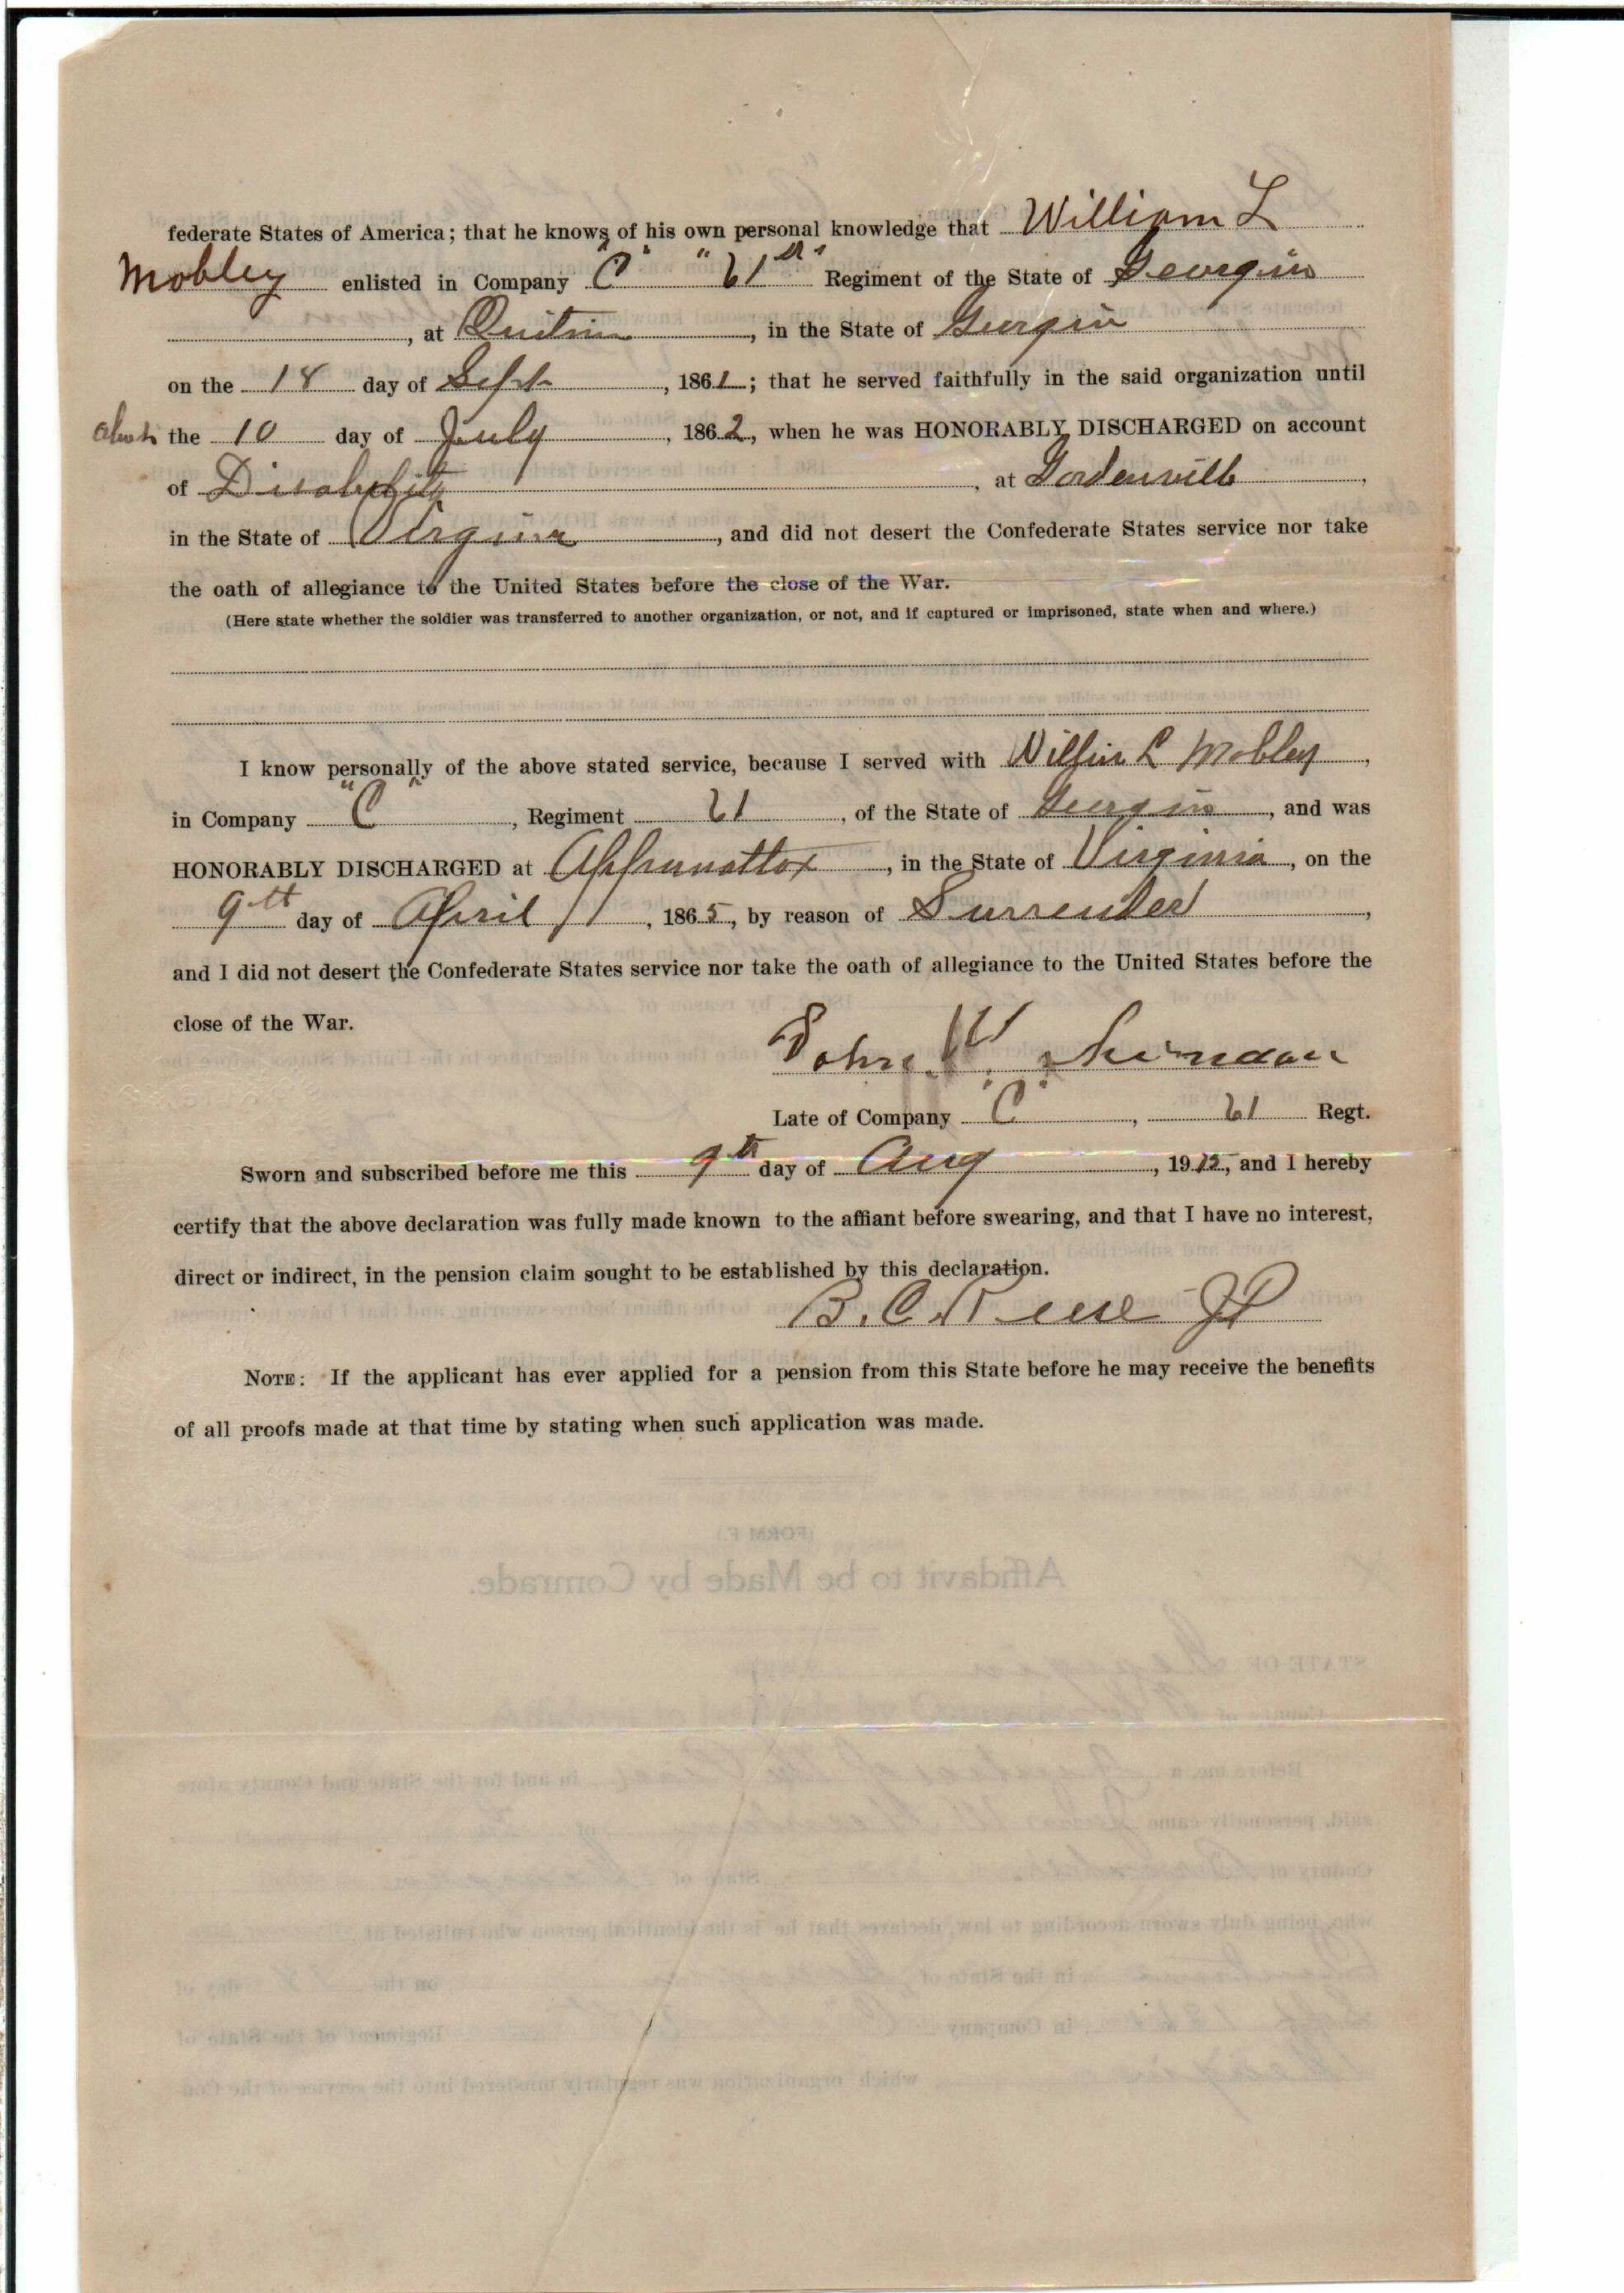 federate States of America; that he knows of his own personal knowledge that William L
Mobley enlisted in Company "C" "61st" Regiment of the State of Georgia
, at Quitman, in the State of Georgia
on the 18 day of Sept, 1861; that he served faithfully in the said organization until
about the 10 day of July, 1862, when he was HONORABLY DISCHARGED on account
of Disability, at Gordonsville,
in the State of Virginia, and did not desert the Confederate States service nor take
the oath of allegiance to the United States before the close of the War.
(Here state whether the soldier was transferred to another organization, or not, and if captured or imprisoned, state when and where.)
I know personally of the above stated service, because I served with William L Mobley,
in Company "C", Regiment 61, of the State of Georgia, and was
HONORABLY DISCHARGED at Appomattox, in the State of Virginia, on the
9th day of April, 1865, by reason of Surrender,
and I did not desert the Confederate States service nor take the oath of allegiance to the United States before the
close of the War.
John W.
Late of Company "C", 61 Regt.
Sworn and subscribed before me this 9th day of Aug, 1912, and I hereby
certify that the above declaration was fully made known to the affiant before swearing, and that I have no interest,
direct or indirect, in the pension claim sought to be established by this declaration.
B. C. JP
NOTE: If the applicant has ever applied for a pension from this State before he may receive the benefits
of all proofs made at that time by stating when such application was made.